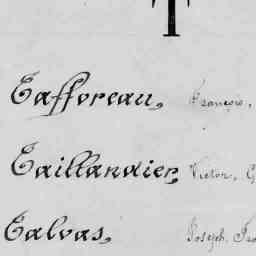 T
Tafforeau, François,
Taillandier, Victor, G
Talvas, Joseph, Fra